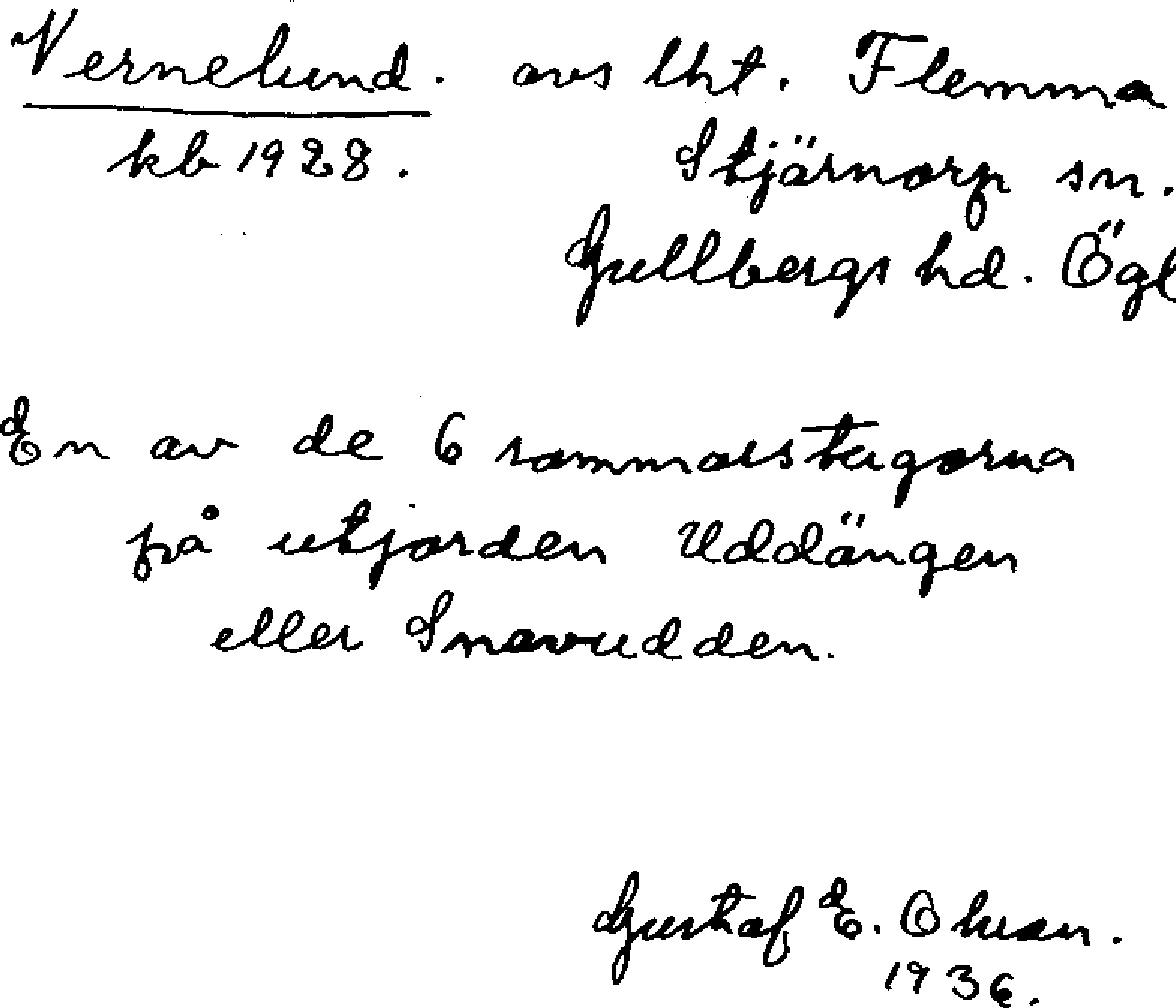 Vernelund. avs lht. Flemma
kb 1928. Stjärnorp sn.
Gullbergs hd. Ögl
En av de 6 sommarstugorna
på utjorden Uddängen
eller Snavudden.
Gustaf E. Ohson.
1936.